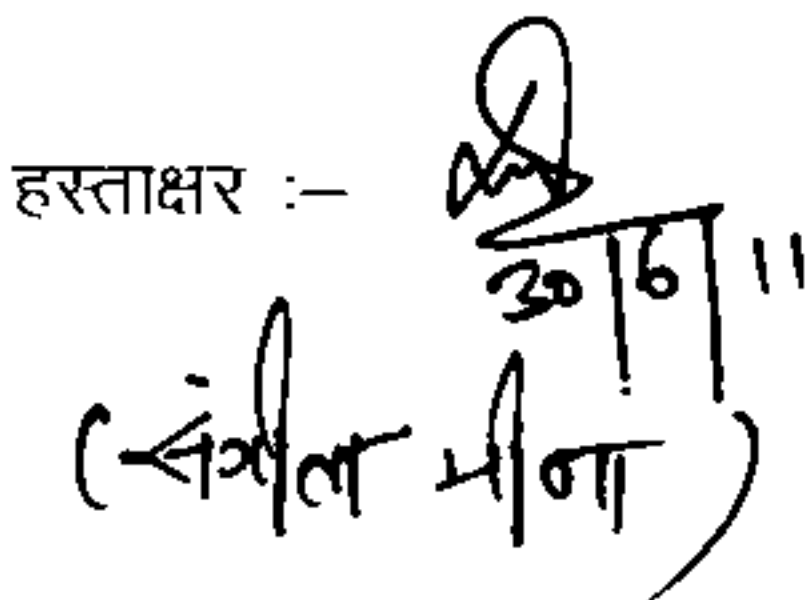 हस्ताक्षर :–
30/6/11
(संगीता मीना)